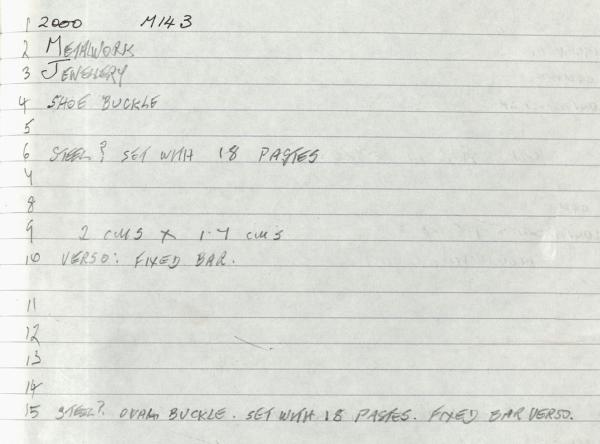 1 2000 M143
2 METALWORK
3 JEWELLERY
4 SHOE BUCKLE
5
6 STEEL? SET WITH 18 PASTES
7
8
9 2 CMS X 1.7 CMS
10 VERSO: FIXED BAR.
11
12
13
14
15 STEEL? OVAL BUCKLE. SET WITH 18 PASTES. FIXED BAR VERSO.